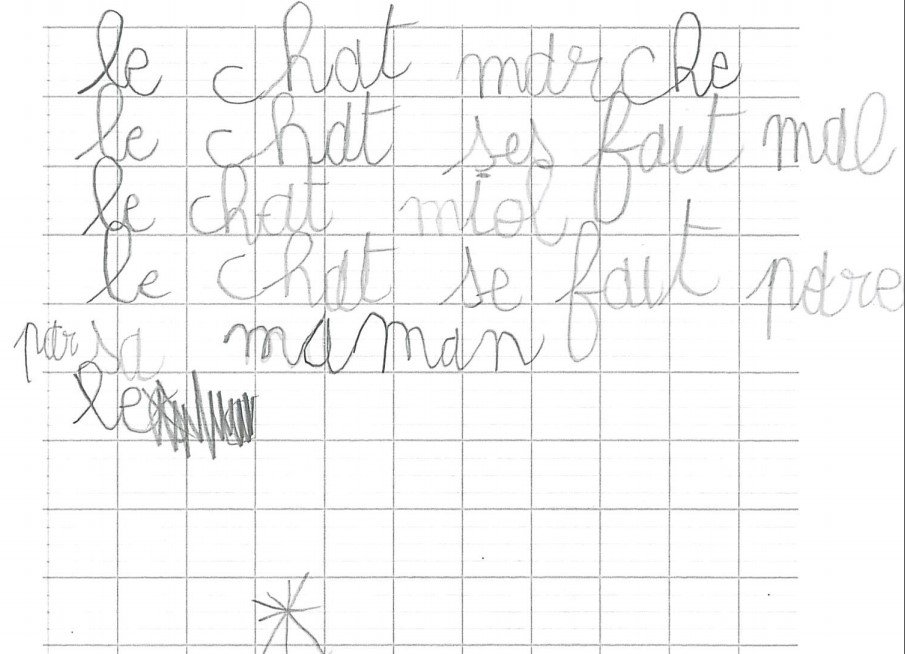 le chat marche
le chat ses fait mal
le chat miol
le chat se fait pare
par sa maman
le